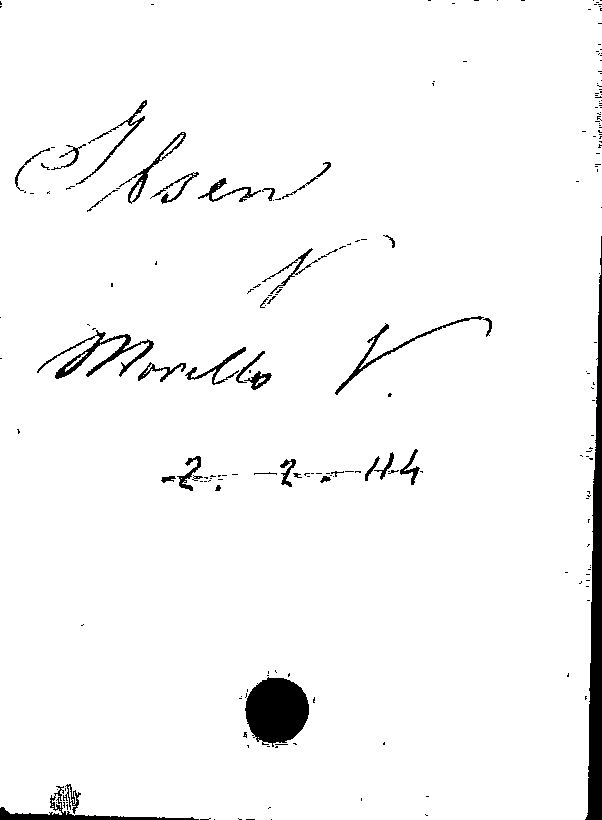 Ibsen
V
Morello V.
2. 2. 114